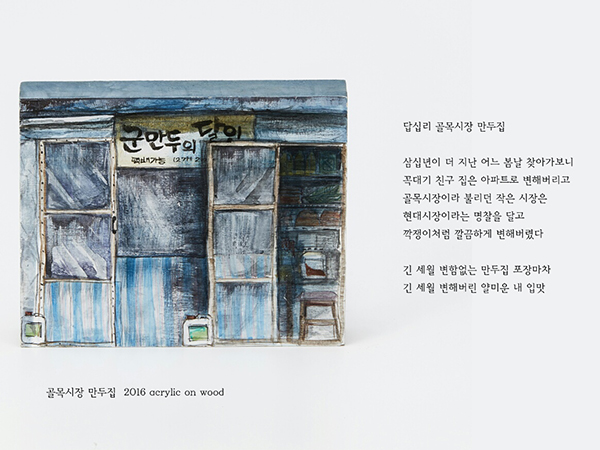 군만두의 달인
답십리 골목시장 만두집
삼십년이 더 지난 어느 봄날 찾아가보니
꼭대기 친구 집은 아파트로 변해버리고
골목시장이라 불리던 작은 시장은
현대시장이라는 명찰을 달고
깍쟁이처럼 깔끔하게 변해버렸다
긴 세월 변함없는 만두집 포장마차
긴 세월 변해버린 얄미운 내 입맛
골목시장 만두집 2016 acrylic on wood